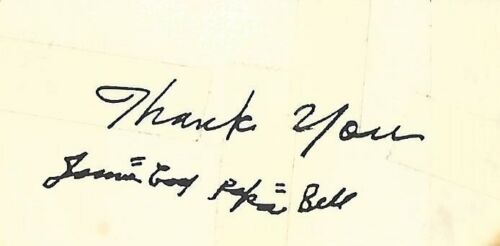 Thank You
James "Cool Papa" Bell